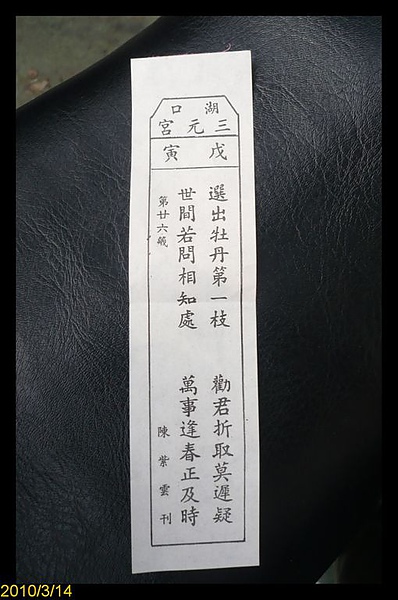 湖口
三元宮
戊寅
選出牡丹第一枝　勸君折取莫遲疑
世間若問相知處　萬事逢春正及時
第廿六籤　陳紫雲刊
2010/3/14